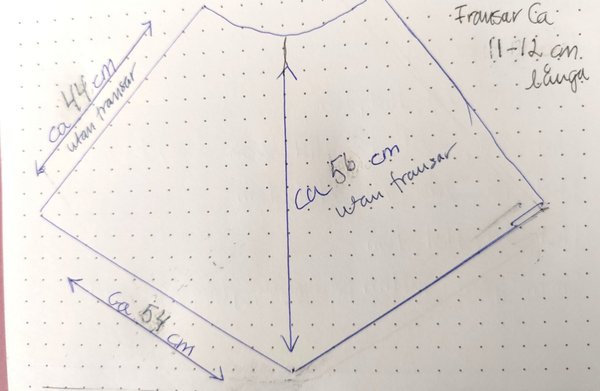 Fransar Ca
11-12 cm.
långa
ca 44 cm
utan fransar
ca 56 cm
utan fransar
ca 54 cm